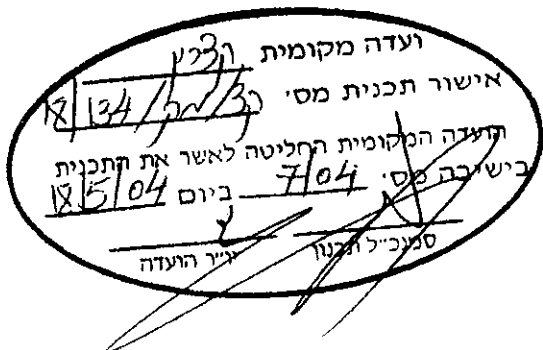 ועדה מקומית
אישור תכנית מס' /מק/134/18
הועדה המקומית החליטה לאשר את התכנית
בישיבה מס' 7/04 ביום 18/5/04
סמנכ״ל תכנון יו״ר הועדה